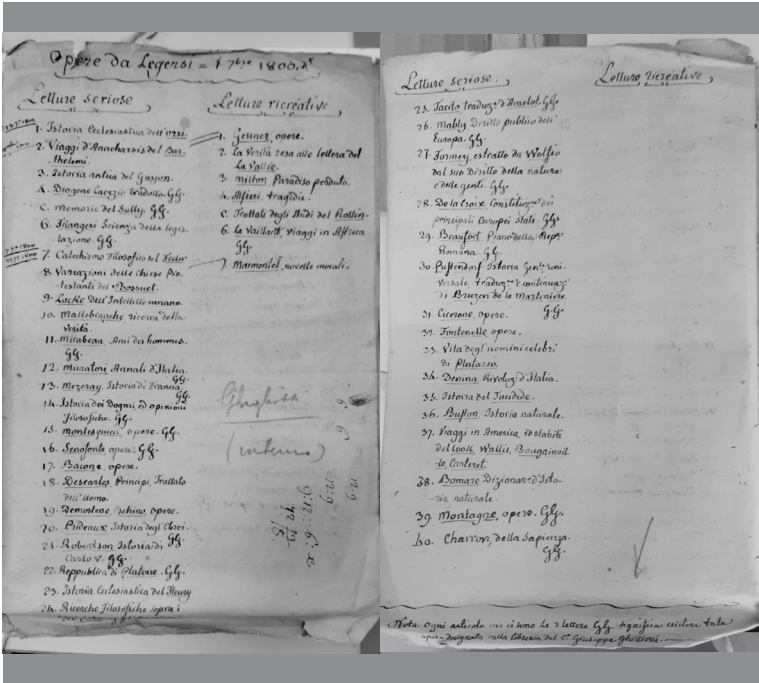 Opere da Legersi = 1 7bre 1800
Letture seriose
1. Istoria Ecclesiastica dell'Orsi.
2. Viaggi d'Anacharsis del Bar-
thelemi.
3. Istoria antica del Gujon.
4. Diogene Laerzio tradotto. Gg.
5. Memorie del Sully. Gg.
6. Filangeri Scienza della legis-
lazione. Gg.
7. Catechismo Filosofico del Feller
8. Variazioni delle Chiese Pro-
testanti del Bossuet.
9. Locke dell'Intelletto umano.
10. Mallebranche ricerca della
verità.
11. Mirabeau, Ami des hommes.
Gg.
12. Muratori Annali d'Italia.
Gg.
13. Mezeray, Istoria di Francia.
Gg.
14. Istoria dei Dogmi ed opinioni
Filosofiche. Gg.
15. Montesquieu, opere. Gg.
16. Senofonte, opere. Gg.
17. Bacone, opere.
18. Descartes, Principi, Trattato
dell'Uomo.
19. Demostene, Eschino, opere.
20. Prideaux Istoria degl'Ebrei.
Gg
21. Robertson, Istoria di
Carlo V. Gg.
22. Reppublica di Platone. Gg.
23. Istoria Ecclesiastica del Fleury
24. Ricerche Filosofiche sopra i
Letture ricreative
1. Gesner, opere.
2. La Verità resa alle lettere del
La Vallée.
3. Milton, Paradiso perduto.
4. Alfieri, tragedie.
5. Trattati degli Studi del Rollin.
6. Le Vaillant, viaggi in Affrica
Gg.
7. Marmontel, novelle morali.
(interno)
Letture seriose.
25. Tacito traduz. d'Amelot. Gg.
26. Mably Diritto publico dell'
Europa. Gg.
27. Formey, estratto da Wolfio
dal suo Diritto della natura
e delle genti. Gg.
28. De la Croix, Constituz. dei
principali Europei Stati. Gg.
29. Beaufort, Piano della Rep.
Romana. Gg.
30. Puffendorf Istoria Gen. uni-
versale, traduz. e continuaz.
di Bruzen de la Martiniere.
Gg.
31. Cicerone, opere.
32. Fontenelle, opere.
33. Vita degl'uomini celebri
di Plutarco.
34. Denina, Rivoluz. d'Italia.
35. Istoria del Tucidide.
36. Buffon, Istoria naturale.
37. Viaggi in America, ed altri
del Cook, Wallis, Bougainvil-
le, Carteret.
38. Bomare Dizionar. d'Isto-
ria naturale.
39. Montagne, opere. Gg.
40. Charron, della Sapienza.
Gg.
Letture ricreative
Nota. Ogni articolo ove ci sono le 2 lettere Gg. significa esistere tale
opera designata nella libreria del C. Giuseppe Ghilioni.